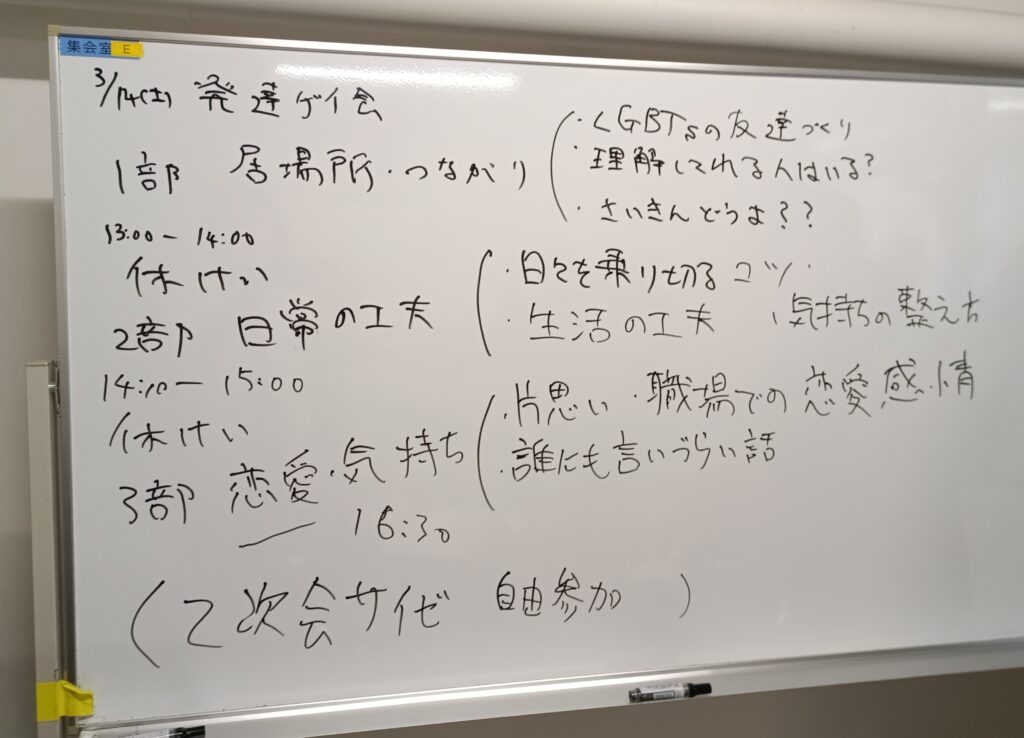 集会室 E
3/14(土) 発達ゲイ会
1部 居場所・つながり
・LGBTsの友達づくり
・理解してれる人はいる?
・さいきんどうよ??
13:00ー14:00
休けい
2部 日常の工夫
・日々を乗り切るコツ・
・生活の工夫 ・気持ちの整え方
14:10ー15:00
休けい
3部 恋愛・気持ち
・片思い・職場での恋愛感情
・誰にも言いづらい話
ー 16:30
(2次会サイゼ 自由参加 )